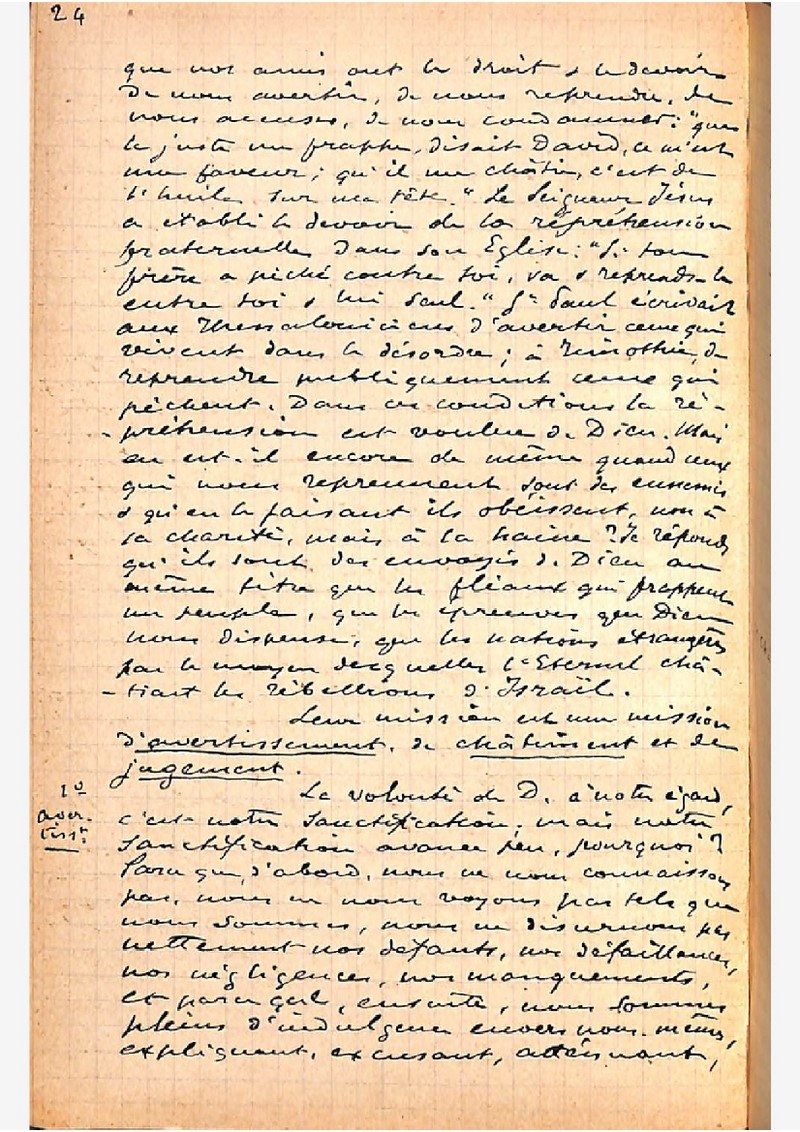 24
que nos amis ont le droit & le devoir
de nous avertir, de nous reprendre, de
nous accuser, de nous condamner: "que
le juste me frappe, disait David, ce m'est
une faveur; qu'il me châtie, c'est de
l'huile sur ma tête." Le Seigneur Jésus
a établi le devoir de la répréhension
fraternelle dans son Eglise: "Si ton
frère a péché contre toi, va & reprends-le
entre toi & lui seul." St Paul écrivait
aux Thessaloniciens d'avertir ceux qui
vivent dans le désordre; à Timothée, de
reprendre publiquement ceux qui
pèchent. Dans ces conditions la ré-
-préhension est voulue de Dieu. Mais
en est-il encore de même quand ceux
qui nous reprennent sont des ennemis
& qu'en le faisant ils obéissent, non à
la charité, mais à la haine? Je réponds
qu'ils sont des envoyés de Dieu au
même titre que les fléaux qui frappent
un peuple, que les épreuves que Dieu
nous dispense, que les nations étrangères
par le moyen desquelles l'Eternel châ-
-tiait les rébellions d'Israël.
Leur mission est une mission
d'avertissement, de châtiment et de
jugement.
1º
aver-
tisst
La volonté de D. à notre égard,
c'est notre sanctification; mais notre
sanctification avance peu, pourquoi?
Parce que, d'abord, nous ne nous connaissons
pas, nous ne nous voyons pas tels que
nous sommes, nous ne discernons pas
nettement nos défauts, nos défaillances,
nos négligences, nos manquements,
et parce que, ensuite, nous sommes
pleins d'indulgence envers nous-mêmes,
expliquant, excusant, atténuant,